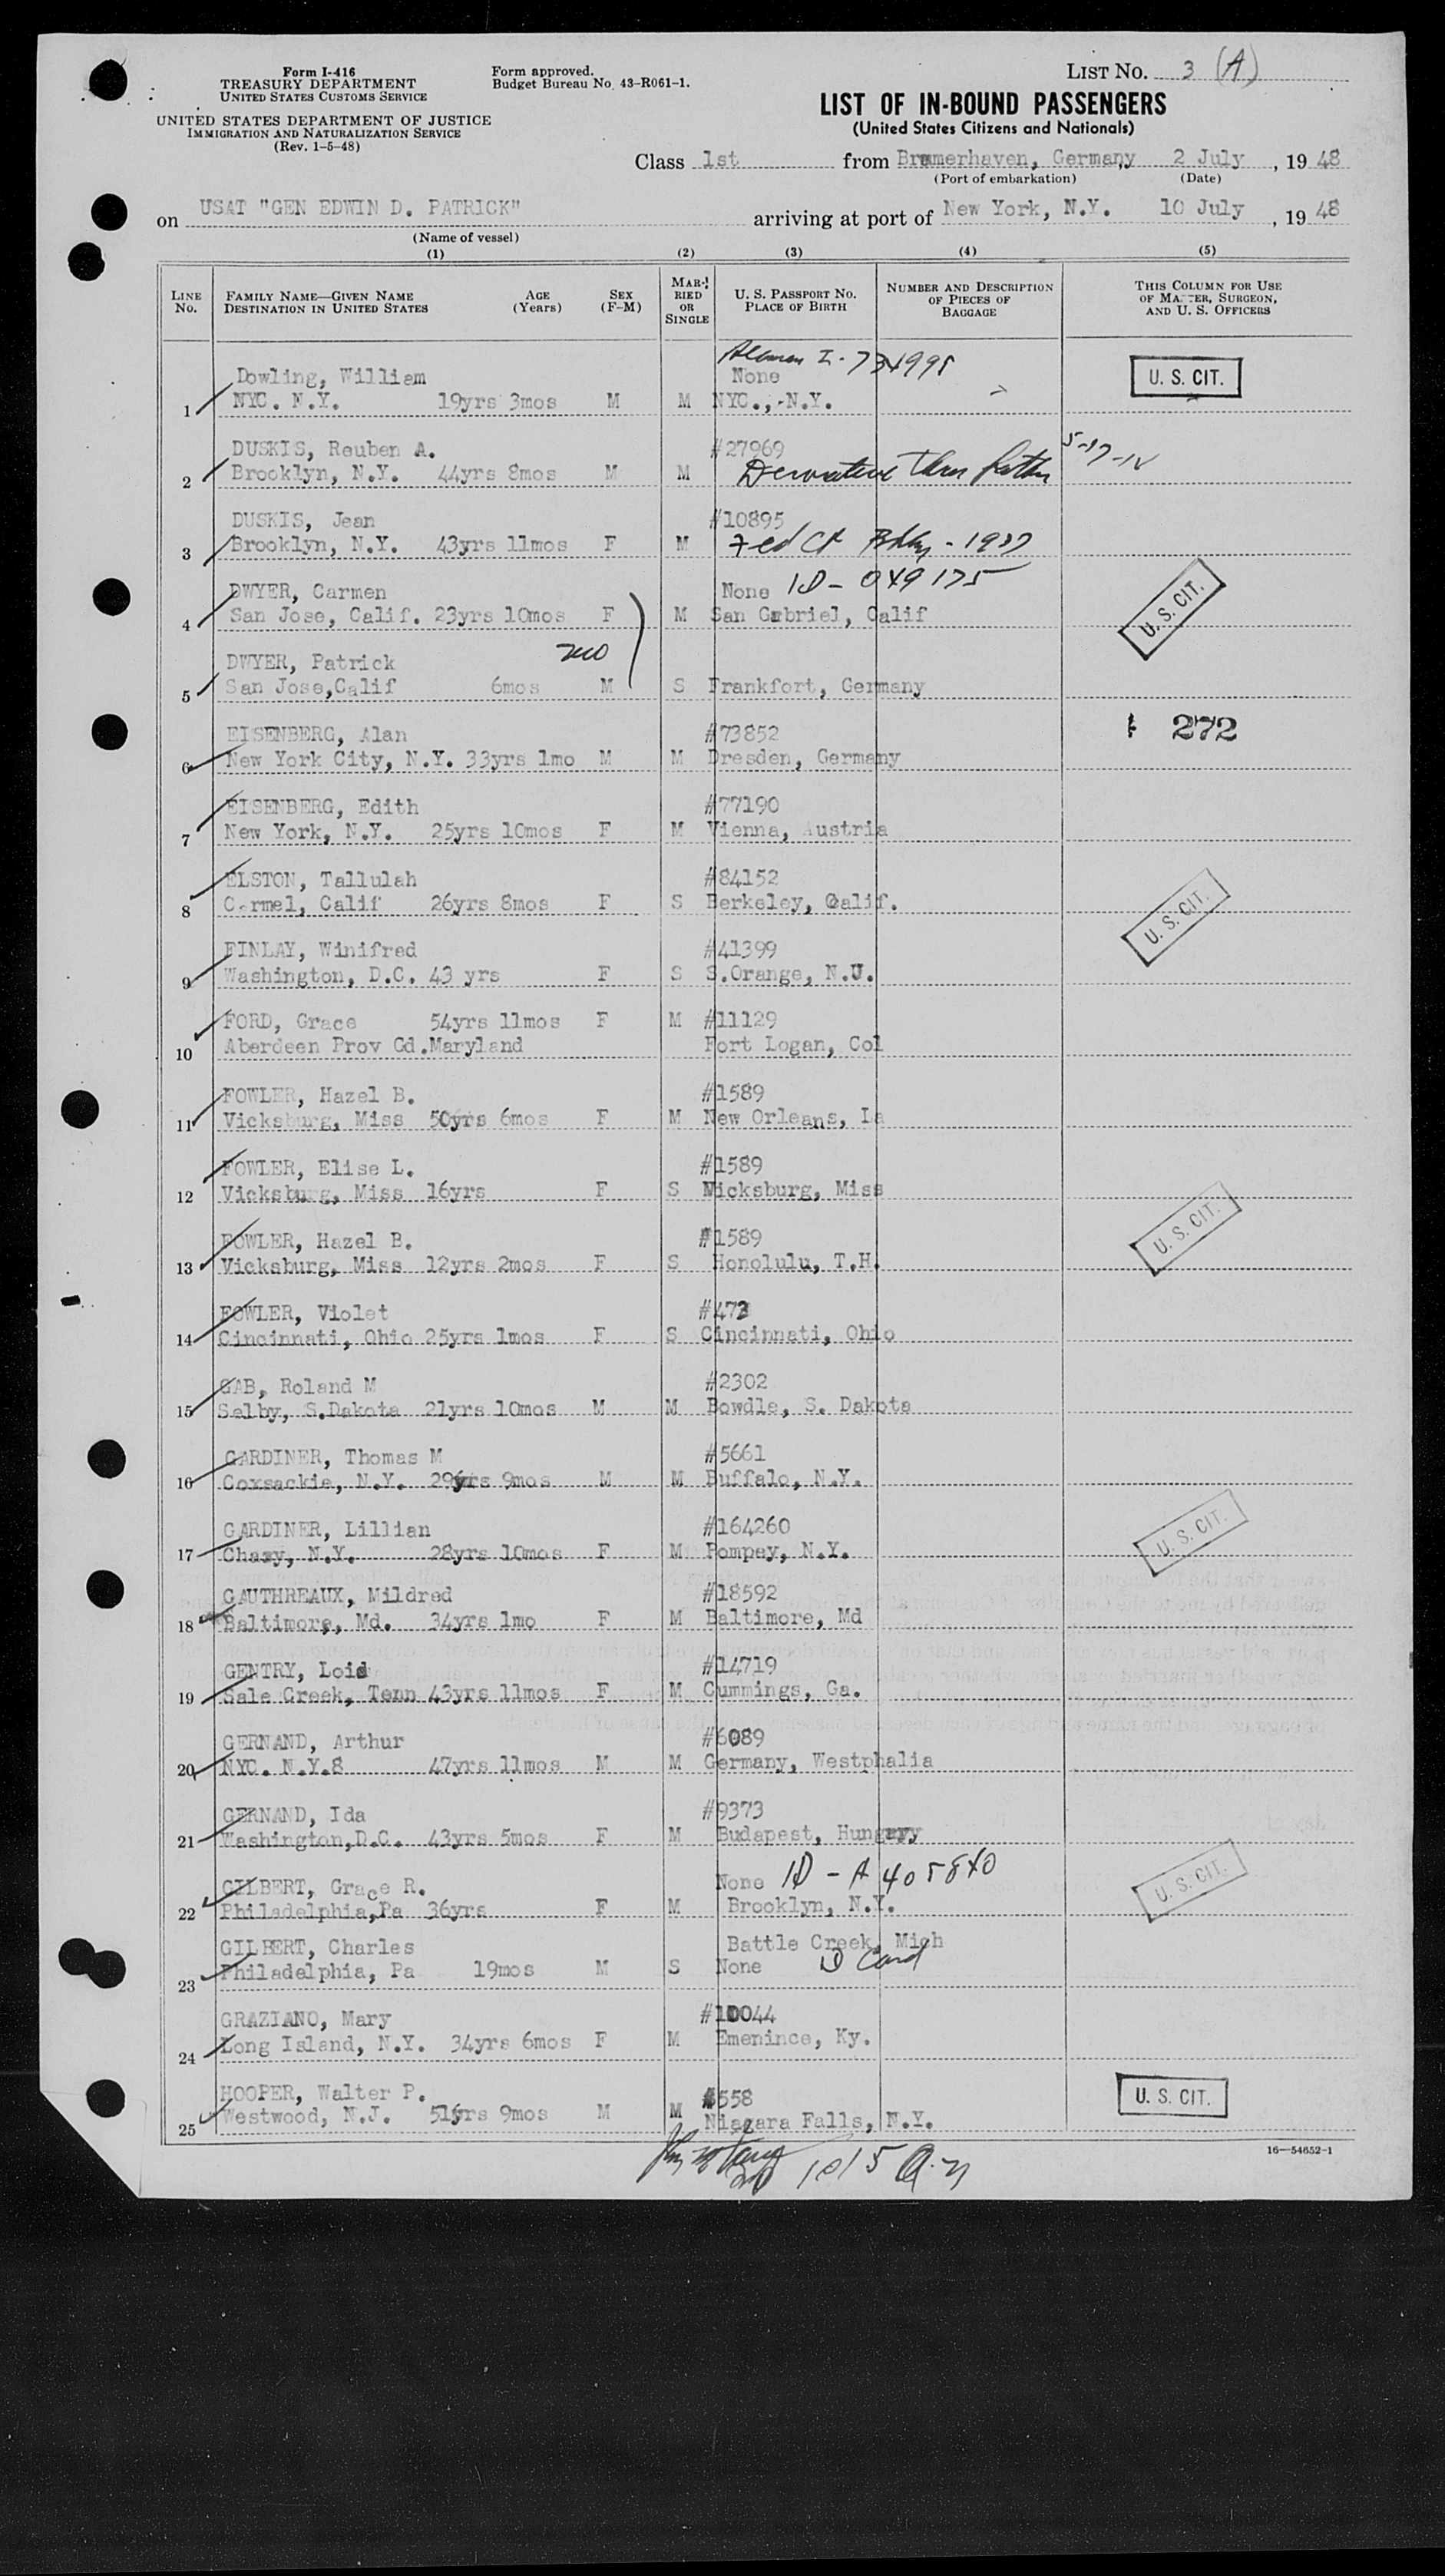 Form I-416
TREASURY DEPARTMENT
UNITED STATES CUSTOMS SERVICE
UNITED STATES DEPARTMENT OF JUSTICE
IMMIGRATION AND NATURALIZATION SERVICE
(Rev. 1-5-48)
Form approved.
Budget Bureau No. 43-R061-1.
LIST NO. 3 (A)
LIST OF IN-BOUND PASSENGERS
(United States Citizens and Nationals)
Class 1st from Bremerhaven, Germany 2 July, 19 48
(Port of embarkation) (Date)
on USAT "GEN EDWIN D. PATRICK" arriving at port of New York, N.Y. 10 July, 19 48
(Name of vessel)
(1) (2) (3) (4) (5)
LINE NO. FAMILY NAME—GIVEN NAME DESTINATION IN UNITED STATES AGE (Years) SEX (F-M) MARRIED OR SINGLE U. S. PASSPORT NO. PLACE OF BIRTH NUMBER AND DESCRIPTION OF PIECES OF BAGGAGE THIS COLUMN FOR USE OF MASTER, SURGEON, AND U. S. OFFICERS
Dowling, William None U. S. CIT.
1 NYC. N.Y. 19yrs 3mos M M NYC.,-N.Y.
DUSKIS, Reuben A. #27969
2 Brooklyn, N.Y. 44yrs 8mos M M Derivative thru father
DUSKIS, Jean #10895
3 Brooklyn, N.Y. 43yrs 11mos F M Fed Ct Bklyn - 1937
DWYER, Carmen None ID - 049175 U. S. CIT.
4 San Jose, Calif. 23yrs 10mos F M San Gabriel, Calif
DWYER, Patrick
5 San Jose,Calif 6mos M S Frankfort, Germany
EISENBERG, Alan #73852 272
6 New York City, N.Y. 33yrs 1mo M M Dresden, Germany
EISENBERG, Edith #77190
7 New York, N.Y. 25yrs 10mos F M Vienna, Austria
ELSTON, Tallulah #84152
8 Carmel, Calif 26yrs 8mos F S Berkeley, Calif. U. S. CIT.
FINLAY, Winifred #41399
9 Washington, D.C. 43 yrs F S S.Orange, N.J.
FORD, Grace 54yrs 11mos F M #11129
10 Aberdeen Prov Gd.Maryland Fort Logan, Col
FOWLER, Hazel B. #1589
11 Vicksburg, Miss 50yrs 6mos F M New Orleans, La
FOWLER, Elise L. #1589
12 Vicksburg, Miss 16yrs F S Vicksburg, Miss
FOWLER, Hazel B. #1589 U. S. CIT.
13 Vicksburg, Miss 12yrs 2mos F S Honolulu, T.H.
FOWLER, Violet #473
14 Cincinnati, Ohio 25yrs 1mos F S Cincinnati, Ohio
GAB, Roland M #2302
15 Selby, S.Dakota 21yrs 10mos M M Bowdle, S. Dakota
GARDINER, Thomas M #5661
16 Coxsackie, N.Y. 29yrs 9mos M M Buffalo, N.Y.
GARDINER, Lillian #164260 U. S. CIT.
17 Chazy, N.Y. 28yrs 10mos F M Pompey, N.Y.
GAUTHREAUX, Mildred #18592
18 Baltimore, Md. 34yrs 1mo F M Baltimore, Md
GENTRY, Lois #14719
19 Sale Creek, Tenn 43yrs 11mos F M Cummings, Ga.
GERNAND, Arthur #6089
20 NYC. N.Y.8 47yrs 11mos M M Germany, Westphalia
GERNAND, Ida #9373
21 Washington,D.C. 43yrs 5mos F M Budapest, Hungary
GILBERT, Grace R. None ID - A 405840 U. S. CIT.
22 Philadelphia,Pa 36yrs F M Brooklyn, N.Y.
GILBERT, Charles Battle Creek, Mich
23 Philadelphia, Pa 19mos M S None ID Card
GRAZIANO, Mary #10044
24 Long Island, N.Y. 34yrs 6mos F M Emenince, Ky.
HOOPER, Walter P. #558 U. S. CIT.
25 Westwood, N.J. 51yrs 9mos M M Niagara Falls, N.Y.
16—54652-1